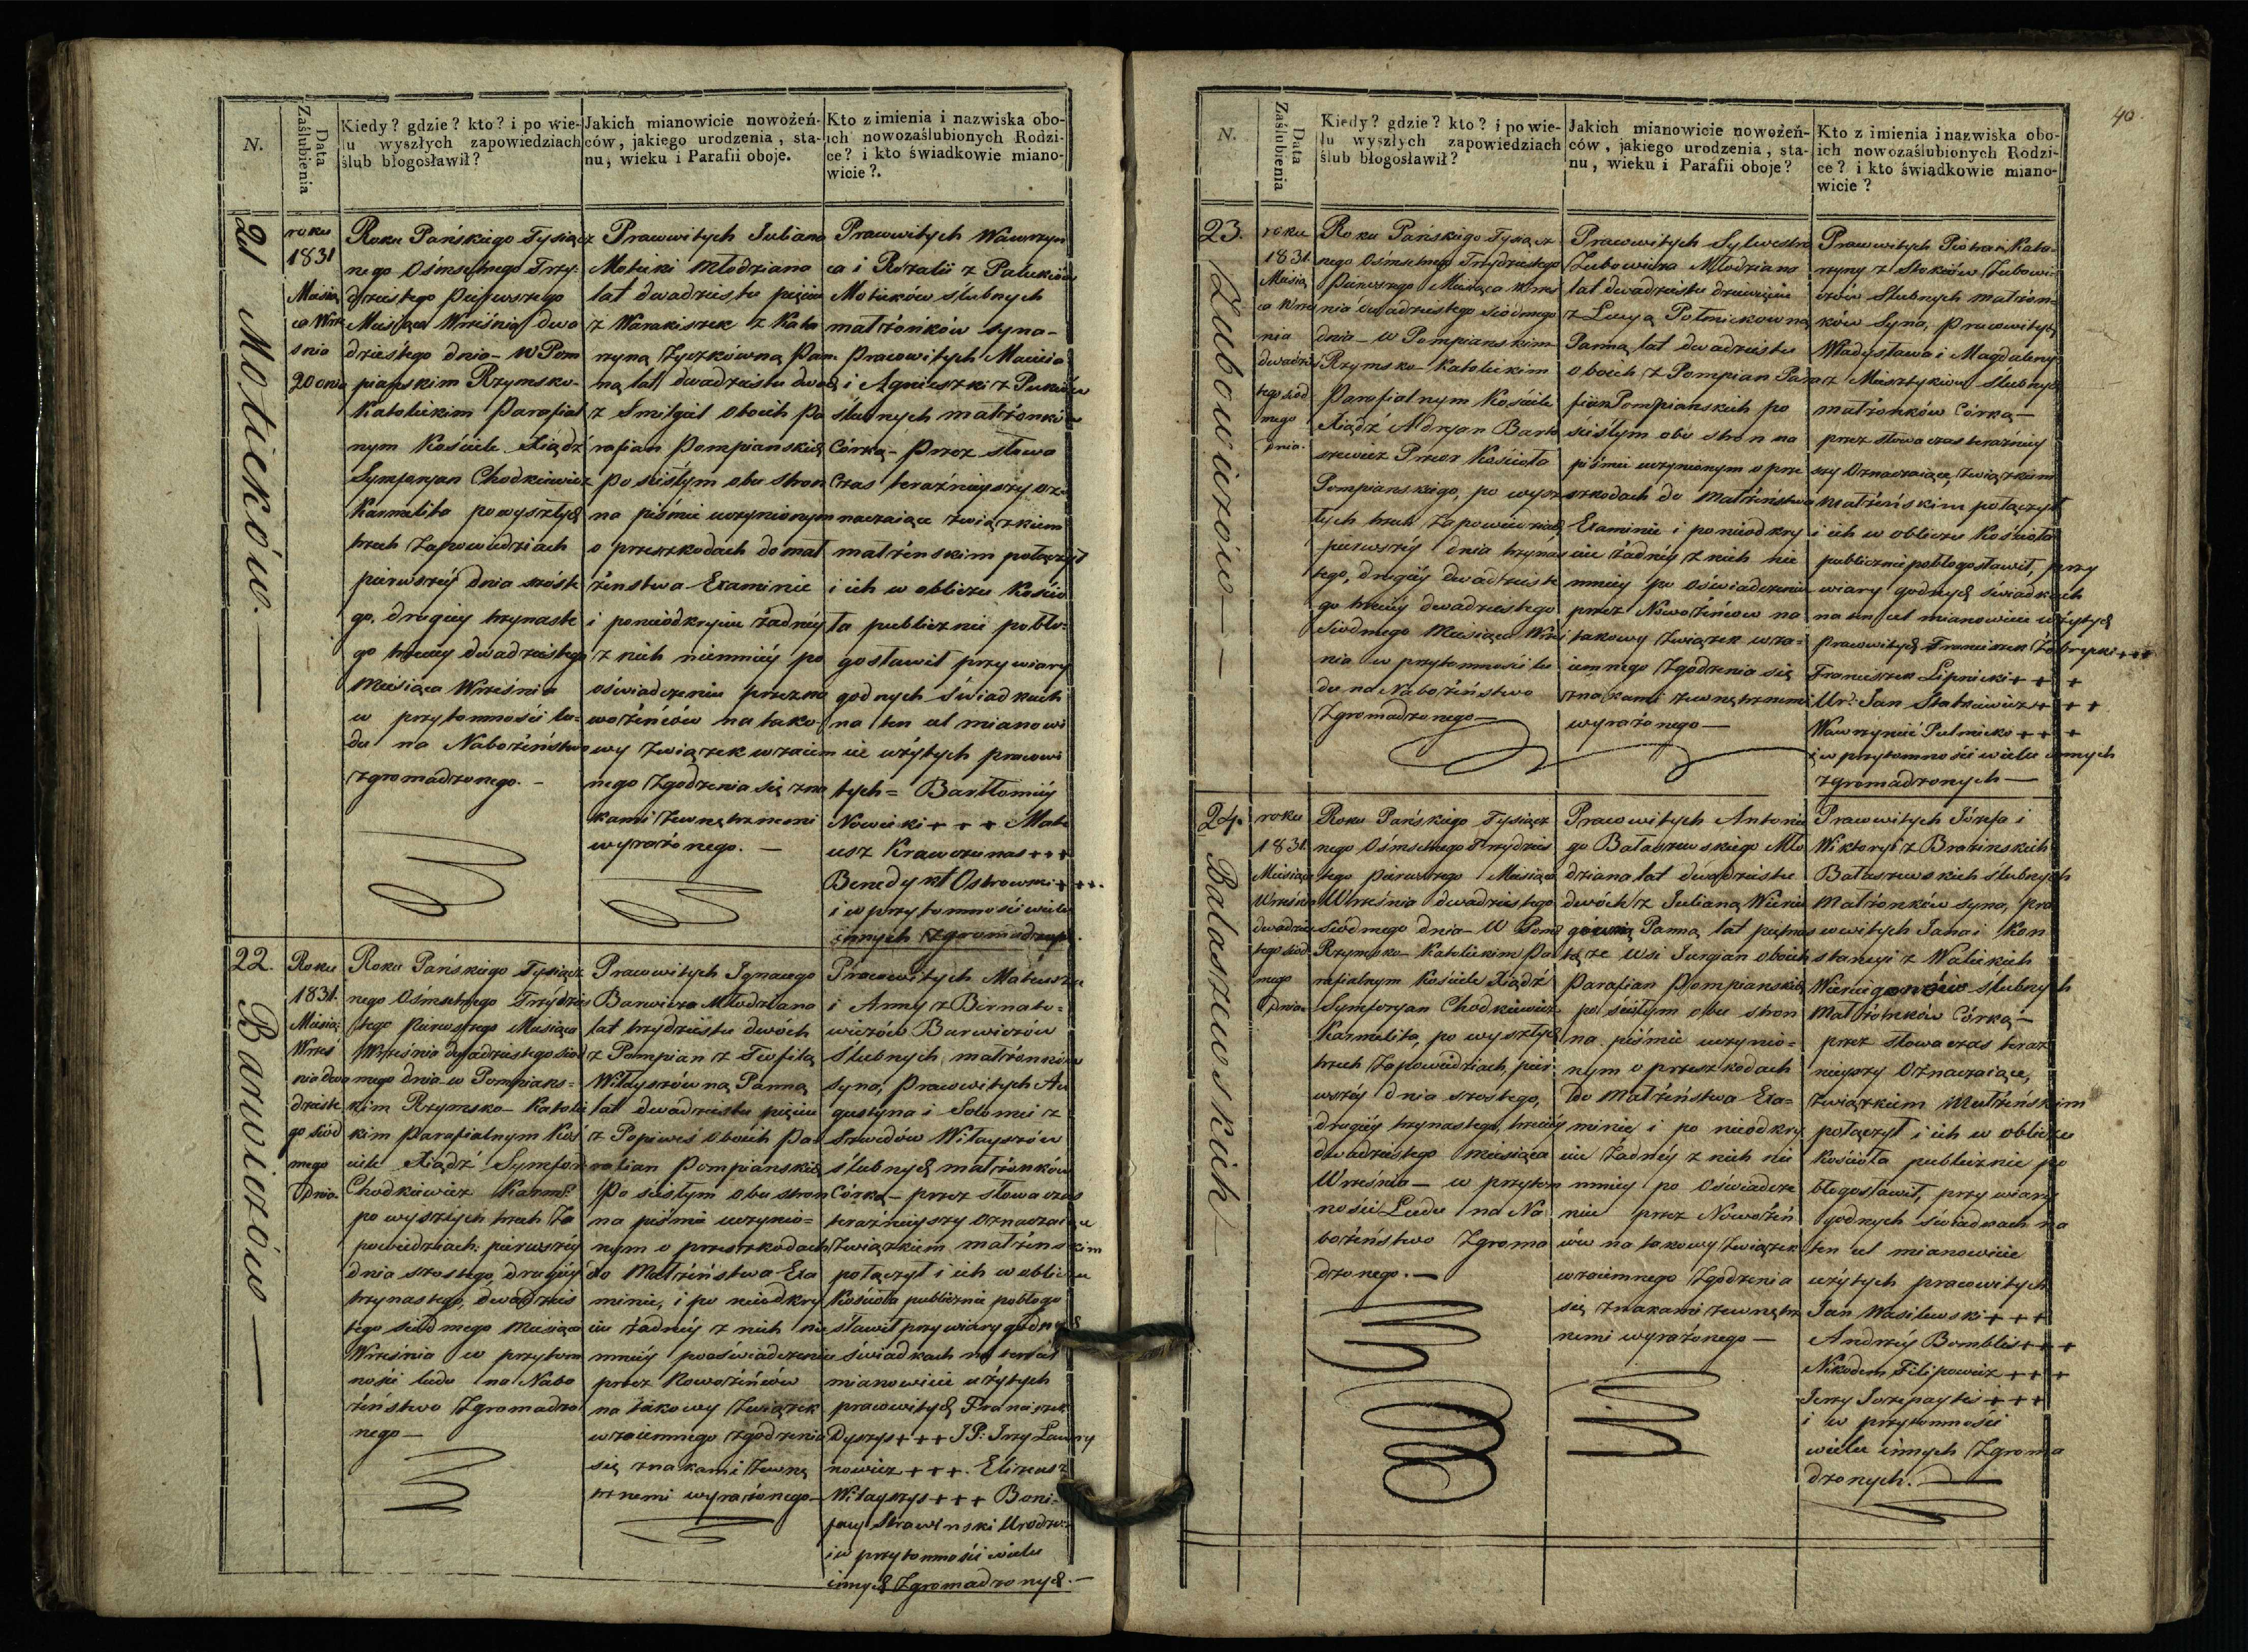 N.
Data Zaślubienia
Kiedy? gdzie? kto? i po wie-
lu wyszłych zapowiedziach
ślub błogosławił?
Jakich mianowicie nowożeń-
ców, jakiego urodzenia, sta-
nu, wieku i Parafii oboje.
Kto z imienia i nazwiska obo-
ich nowozaślubionych Rodzi-
ce? i kto świadkowie miano-
wicie?.
21
Moticków.—
roku
1831
Miesią
ca Wrze
snia
20 dnia
Roku Pańskiego Tysiącz
nego Ośmsetnego Trzy-
dziestego Pierwszego
Miesiąca Września dwa
dziestego dnia – W Pom
piańskim Rzymsko-
Katolickim Parafial
nym Kościele Xiądz
Symforyan Chodkiewicz
Karmelita po wyszłych
trzech Zapowiedziach
pierwszéy dnia szóste
go, drugiéy trzynaste
go trzeciéy dwadziestego
Miesiąca Września
w przytomności lu-
du na Nabożeństwo
zgromadzonego. –
Pracowitych Juliana
Moticki Młodziana
lat dwadziestu pięciu
z Warakiszek z Kata
rzyną Zyczkówną Pan-
ną lat dwadziestu dwoch
z Smilgiel oboich Pa
rafian Pompianskich
po scisłym obu stron
na piśmie uczynionym
o przeszkodach do mał
żenstwa Examinie
i ponieodkryciu żadnéy
z nich niemniéy po
oświadczeniu przez no
wożeńców na tako-
wy Związek wzaiem
nego Zgodzenia się zna
kami Zewnętrznemi
wyrażonego. –
Pracowitych Wawrzyn
ca i Rozalii z Palukiów
Moticków ślubnych
małżonków syna –
Pracowitych Macieia
i Agnieszki z Pukiów
ślubnych małżonków
Córką – Przez słowa
Czas teraźnieyszy oz-
naczaiące związkiem
małżenskim połączył
i ich w obliczu Kościo
ła publicznie pobło-
gosławił przy wiary
godnych świadkach
na ten cel mianowi
cie użytych pracowi
tych = Bartłomiéy
Nowicki + + + Mate
usz Krawczunas + + +
Benedykt Ostrowski + + +.
i w przytomności wielu
innych zgromadzonych.
22.
Barwiczów —
Roku
1831.
Miesią:
Wrześ
nia dwa
dzieste
go siód
mego
dnia.
Roku Pańskiego Tysiącz
nego Ośmsetnego Trzydzies
tego Pierwszego Miesiąca
Września dwadziestego siod
mego dnia w Pompians-
kim Rzymsko-Katolic
kim Parafialnym Koś
ciele Xiądz Symfor:
Chodkiewicz Karm:
po wyszłych trzech Za
powiedziach; pierwszéy
dnia szostego, drugiéy
trzynastego, dwadzies
tego siódmego Miesiąca
Września w przytom
ności ludu na Nabo
żeństwo Zgromadzo
nego –
Pracowitych Ignacego
Barwicza Młodziana
lat trzydziestu dwóch
z Pompian z Teofilą
Witayszówną Panną
lat dwadziestu pięciu
z Popiewoś Oboich Pa
rafian Pompianskich
Po scisłym obu stron
na piśmie uczynio-
nym o przeszkodach
do Małżeństwa Exa
minie, i po nieodkry
ciu żadnéy z nich nie
mniéy po oświadczeniu
przez Nowożeńców
na takowy Związek
wzaiemnego zgodzenia
się znakami Zewnę
trznemi wyrażonego –
Pracowitych Mateusza
i Anny z Birnato-
wiczów Barwiczów
Ślubnych małżonków
syna, Pracowitych Au
gustyna i Solomei z
Szwedów Witayszów
ślubnych małżonków
Córką – przez słowa czas
teraźnieyszy oznaczaiące
Związkiem małżenskim
połączył i ich w obliczu
Kościoła publicznie pobłogo
sławił przy wiary godnych
świadkach na ten cel
mianowicie użytych
pracowitych Franciszek
Dyszys + + + JP: Jrzy Ławry
nowicz + + +. Elizeusz
Witayszys + + + Boni-
facy Strawinski Urodzo:
i w przytomności wielu
innych Zgromadzonych. –
40.
N.
Data Zaślubienia
Kiedy? gdzie? kto? i po wie-
lu wyszłych zapowiedziach
ślub błogosławił?
Jakich mianowicie nowożeń-
ców, jakiego urodzenia, sta-
nu, wieku i Parafii oboje?
Kto z imienia i nazwiska obo-
ich nowozaślubionych Rodzi-
ce? i kto świadkowie miano-
wicie?
23.
Zubowiczów — —
roku
1831.
Miesią
ca Wrze
nia
dwadzies
tego siod
mego
dnia.
Roku Pańskiego Tysiącz
nego Ośmsetnego Trzydziestego
Pierwszego Miesiąca Wrześ
nia dwadziestego siódmego
dnia – w Pompianskim
Rzymsko-Katolickim
Parafialnym Kościele
Xiądz Adryan Barto
szewicz Przeor Kościoła
Pompianskiego, po wysz
łych trzech Zapowiedziach,
pierwszéy dnia trzynas
tego, drugiéy dwadzieste
go trzeciéy dwadziestego
Siodmego Miesiąca Wrześ
nia w przytomności lu
du na Nabożeństwo
Zgromadzonego –
Pracowitych Sylwestra
Zubowicza Młodziana
lat dwadziestu dziewięciu
z Łucyą Połnickowną
Panną lat dwadziestu
oboich z Pompian Para
fiian Pompianskich po
scisłym obu stron na
piśmie uczynionym o prze
szkodach do Małżeństwa
Examinie i po nieodkry
ciu żadnéy z nich nie
mniéy po oświadczeniu
przez Nowożeńców na
takowy Związek wza-
iemnego Zgodzenia się
znakami zewnętrznemi
wyrażonego –
Pracowitych Piotra i Kata-
rzyny z Stokiów Zubowi-
czów Ślubnych małżon-
ków Syna, Pracowitych
Władysława i Magdaleny
z Misztykiów Ślubnych
małżonków Córką –
przez słowa czas teraźniey
szy Oznaczaiące, Związkiem
Małżeńskim połączył
i ich w obliczu Kościoła
publicznie pobłogosławił, przy
wiary godnych świadkach
na ten cel mianowicie użytych
pracowitych Franciszek + + +
Franciszek Lipnicki + + +
Ur: Jan Stabrewicz + + +
Wawrzyniec Pulnicko + + +
i w przytomności wielu innych
zgromadzonych —
24.
Bałaszewskich —
roku
1831.
Miesiąca
Września
dwadzies
tego siod
mego
dnia
Roku Pańskiego Tysiącz
nego Ośmsetnego Trzydzies
tego pierwszego Miesiąca
Września dwadziestego
siódmego dnia – W Pomp
Rzymsko-Katolickim Pa
rafialnym Kościele Xiądz
Symforyan Chodkiewicz
Karmelita, po wyszłych
trzech Zapowiedziach, pier
wszéy dnia szostego,
drugiéy trzynastego, trzeciéy
dwadziestego miesiąca
Września – w przytom
ności Ludu na Na
bożeństwo Zgroma
dzonego. —
Pracowitych Antonie
go Bałaszewskiego Mło
dziana lat dwadziestu
dwóch z Julianą Wierci
gówną Panną lat piętnas
tą ze Wsi Jurgian oboich
Parafian Pompianskich
po scisłym obu stron
na piśmie uczynio-
nym o przeszkodach
do Małżeństwa Exa-
minie i po nieodkry
ciu żadnéy z nich nie
mniéy po Oświadcze
niu przez Nowożeń
ców na takowy Związek
wzaiemnego Zgodzenia
się znakami zewnętrz
nemi wyrażonego —
Pracowitych Józefa i
Wiktoryi z Brazinskich
Bałaszewskich ślubnych
Małżonków syna, pra
cowitych Jana i Kon
stancyi z Walickich
ślubnych
Małżonków Córką –
przez słowa czas teraz
nieyszy Oznaczaiące,
Związkiem Małżeńskim
połączył i ich w obliczu
Kościoła publicznie po
błogosławił, przy wiary
godnych świadkach na
ten cel mianowicie
użytych pracowitych
Jan Wasilewski + + +
Andrzéy Bomblis + + +
Nikodem Filipowicz + + +
Jerzy Jozepaytis + + +
i w przytomności
wielu innych Zgroma
dzonych. —